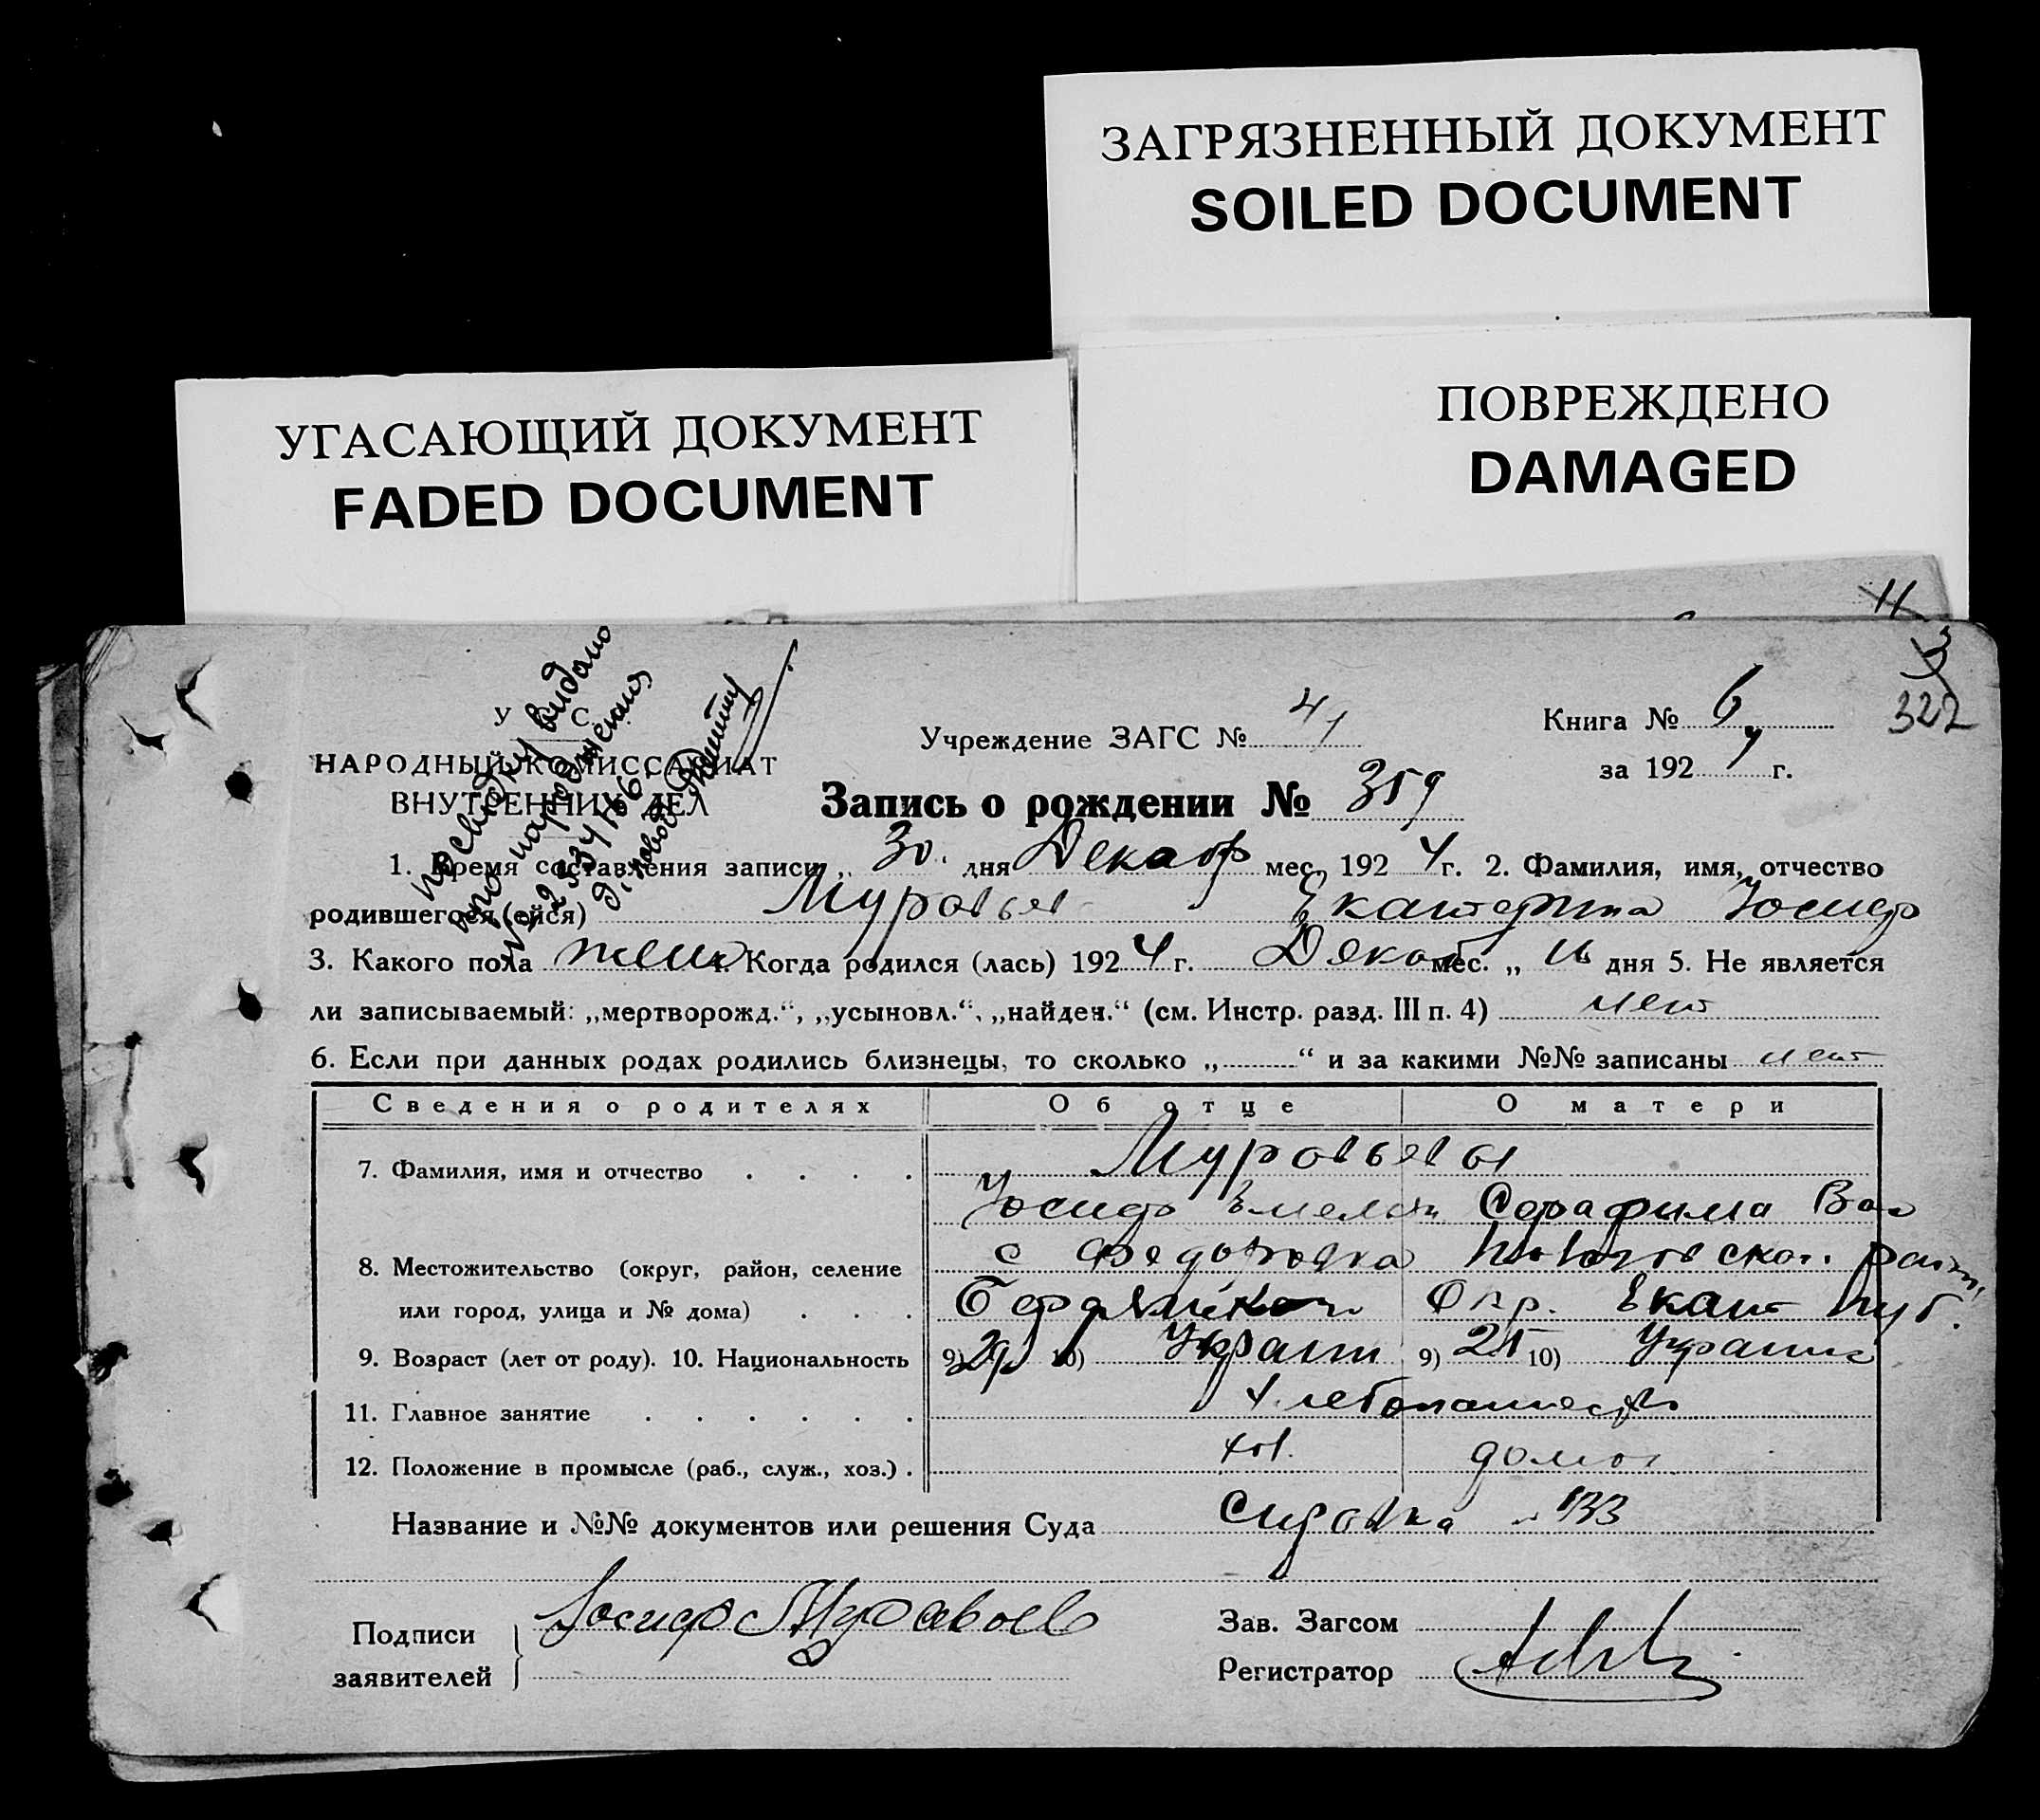 ЗАГРЯЗНЕННЫЙ ДОКУМЕНТ
SOILED DOCUMENT
УГАСАЮЩИЙ ДОКУМЕНТ
FADED DOCUMENT
ПОВРЕЖДЕНО
DAMAGED
11
3
322
посвідку видано
про народження
У. С.
НАРОДНЫЙ КОМИССАРИАТ
ВНУТРЕННИХ ДЕЛ
Учреждение ЗАГС № 41
Книга № 6
за 1924 г.
Запись о рождении № 359
1. Время составления записи „ 30 дня Декабр мес. 1924 г. 2. Фамилия, имя, отчество
родившегося (ейся) Муровьев Екатерина Иосиф
3. Какого пола жен 4. Когда родился (лась) 1924 г. Декаб мес. „ 16 дня 5. Не является
ли записываемый: „мертворожд.“, „усыновл.“, „найден.“ (см. Инстр. разд. III п. 4) нет
6. Если при данных родах родились близнецы, то сколько „ “ и за какими №№ записаны нет
Сведения о родителях Об отце О матери
7. Фамилия, имя и отчество Муровьевы
Иосиф Емельян Серафима Вас
8. Местожительство (округ, район, селение с Федоровка район,
или город, улица и № дома) Бердянской Окр. Екат губ.
9. Возраст (лет от роду). 10. Национальность 9) 29 10) Украин 9) 25 10) Украин
11. Главное занятие Хлебопашество
12. Положение в промысле (раб., служ., хоз.) хоз. домох
Название и №№ документов или решения Суда 133
Подписи заявителей Иосиф Муравьев
Зав. Загсом
Регистратор